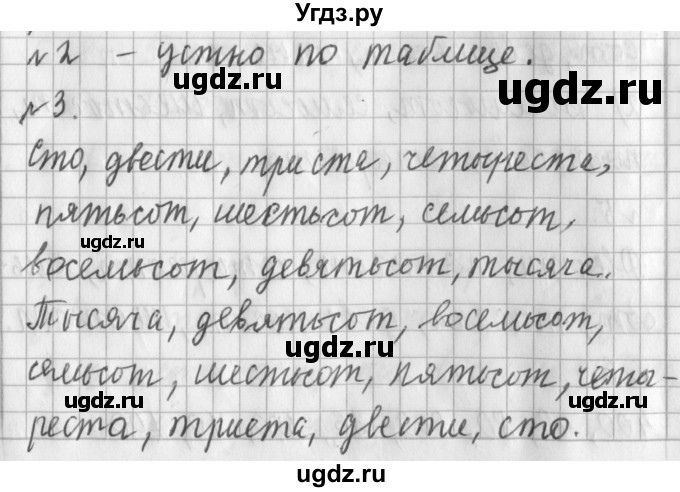 Угдз.ру
№2 – устно по таблице.
ugdz.ru ugdz.ru
№3.
ugdz.ru
Сто, двести, триста, четыреста,
пятьсот, шестьсот, семьсот,
ugdz.ru
восемьсот, девятьсот, тысяча.
Тысяча, девятьсот, восемьсот,
ugdz.ru
семьсот, шестьсот, пятьсот, четы-
ugdz.ru ugdz.ru
реста, триста, двести, сто.
ugdz.ru